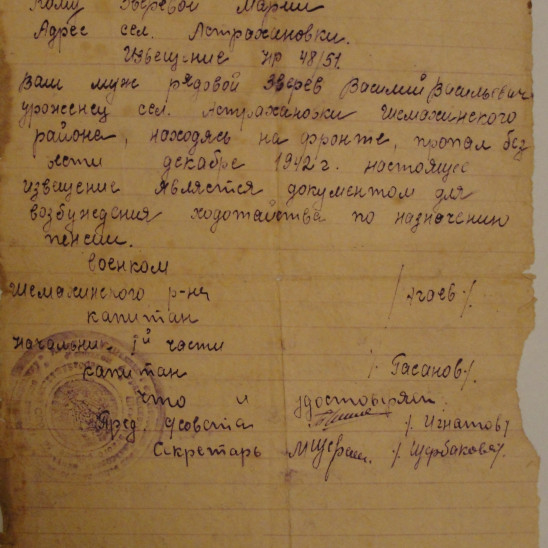 Кому Зверевой Марии
Адрес сел. Астрахановки.
Извещение нр 48/51.
Ваш муж рядовой Зверев Василий Васильевич
уроженец сел. Астрахановки Шемахинского
района, находясь на фронте, пропал без
вести декабре 1942 г. настоящее
извещение является документом для
возбуждения ходотайства по назначению
пенсии.
военком
Шемахинского р-на
капитан / Агаев /.
начальник 1й части
капитан /. Гасанов /.
что и удостоверяем.
Пред. с/совета /. Игнатов /
Секретарь /. Щербакова /.